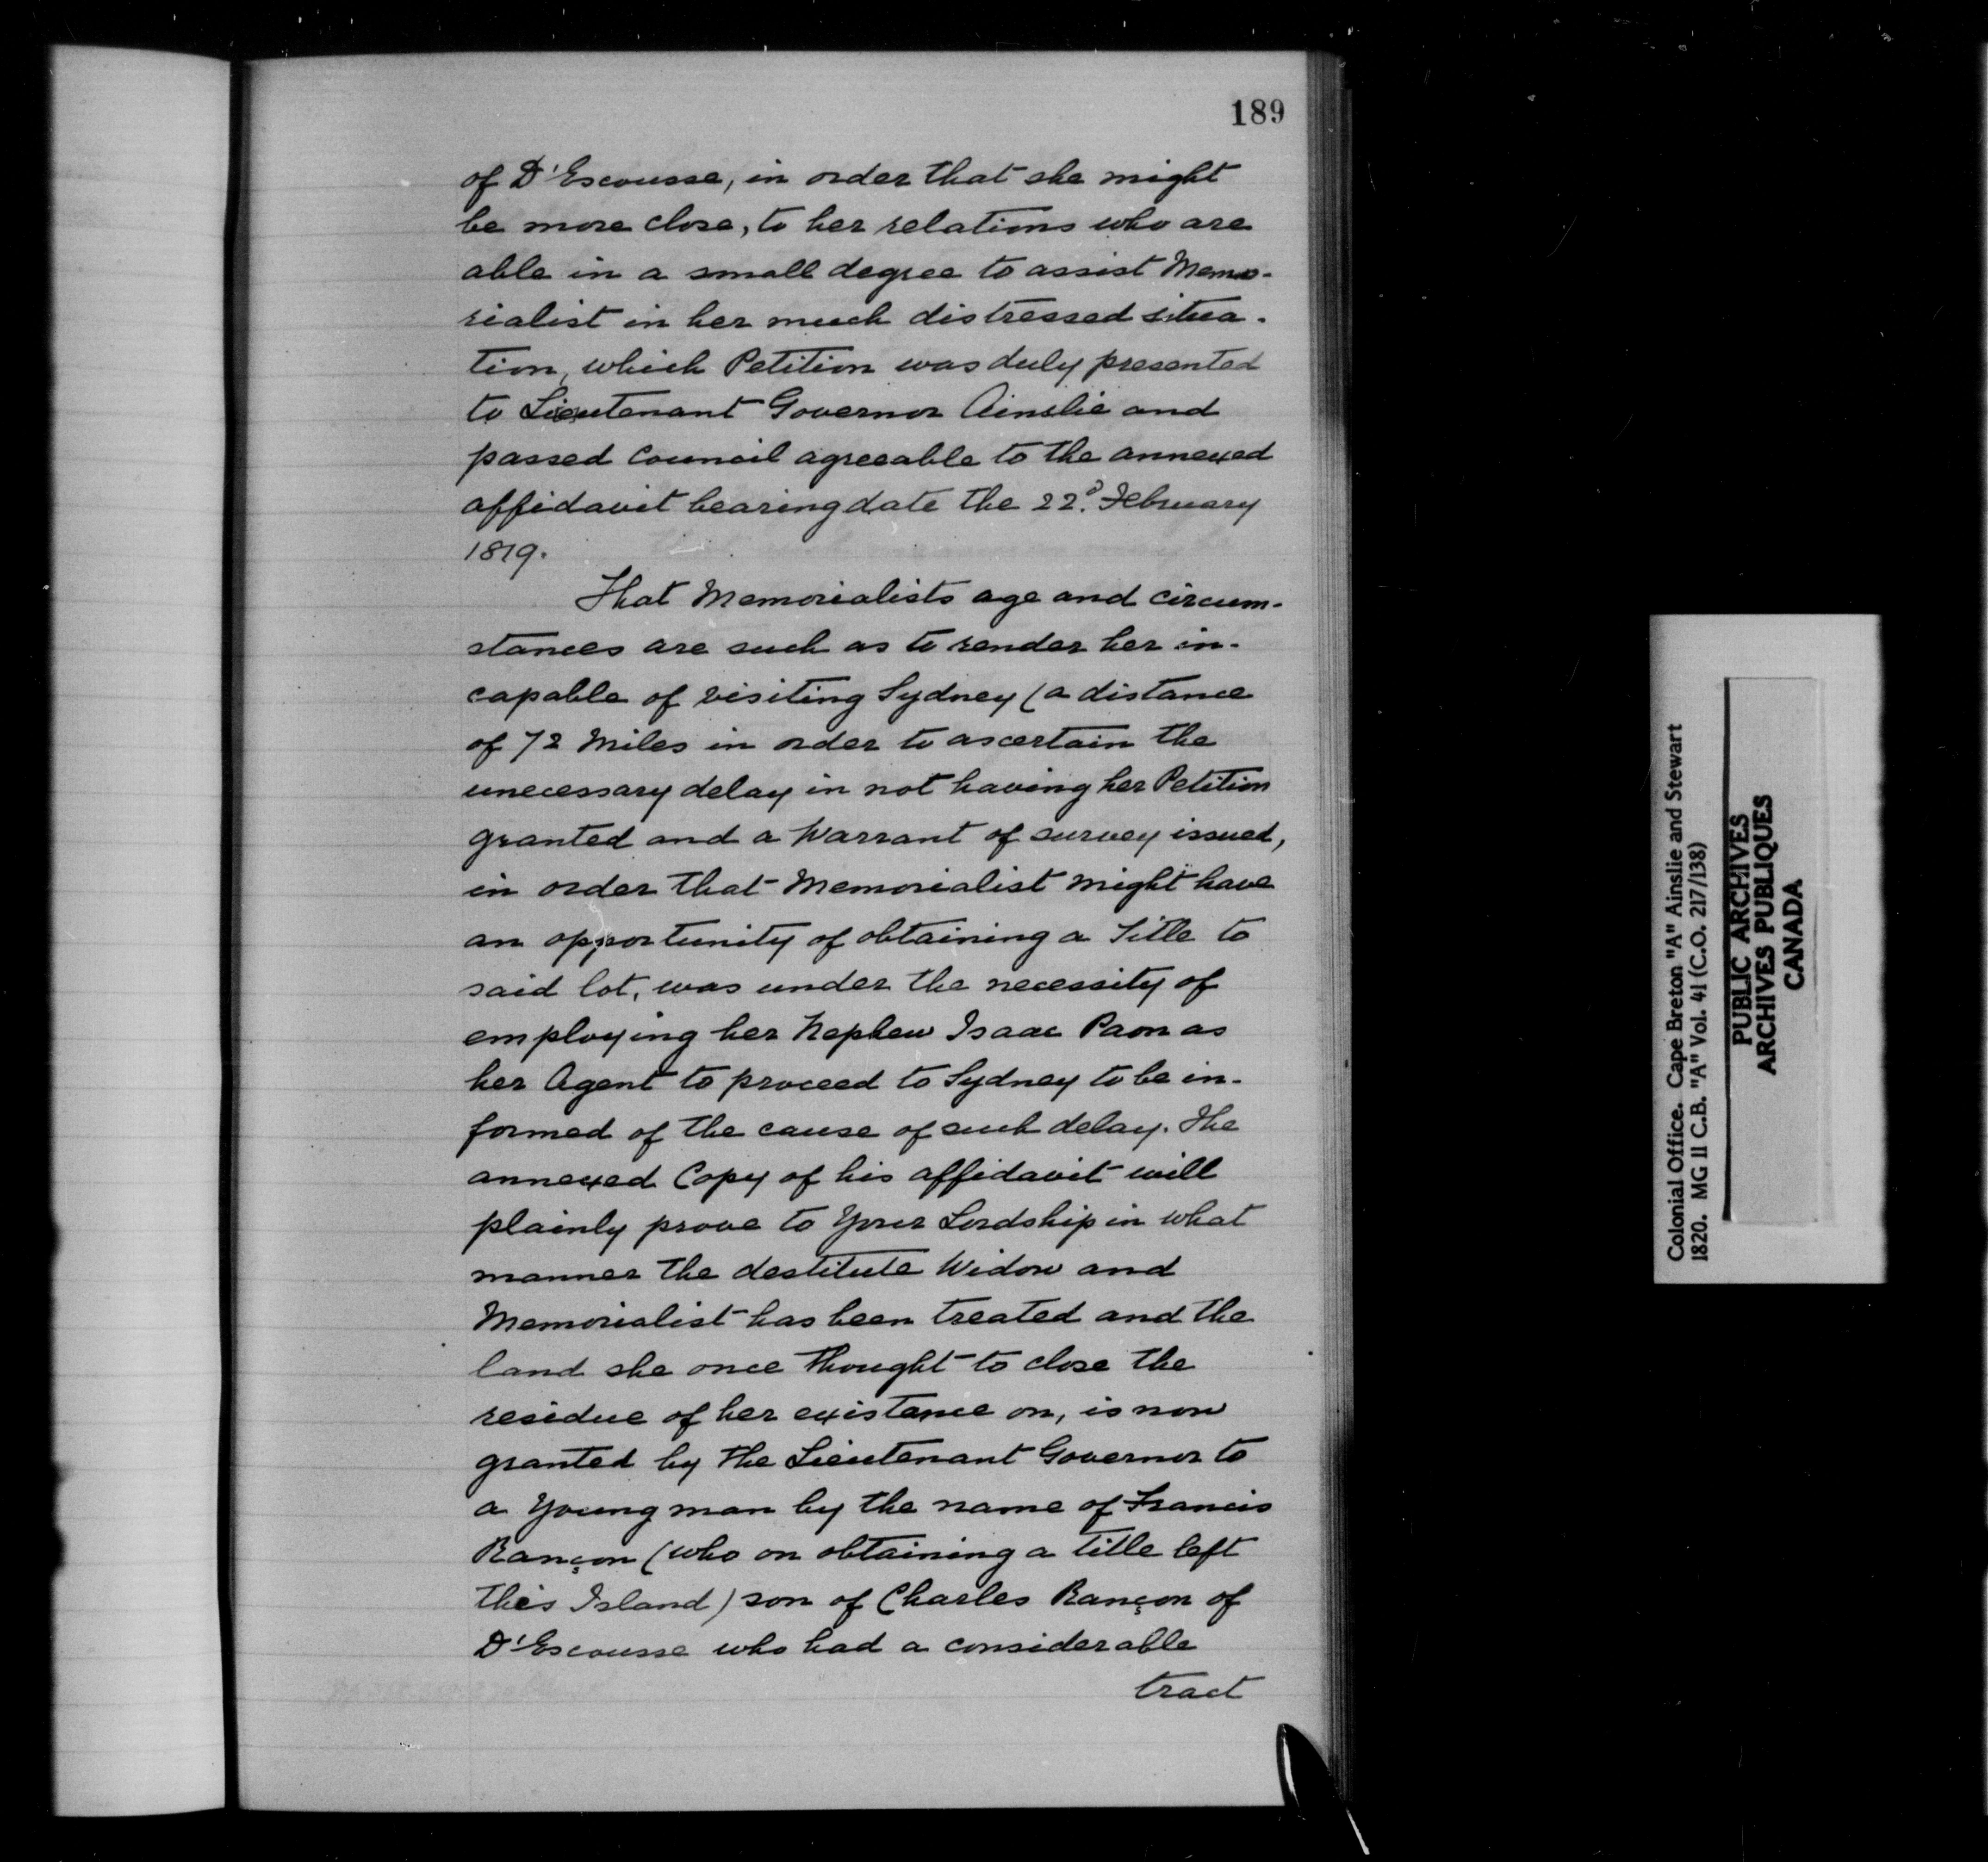 189
of D'Escousse, in order that she might
be more close, to her relations who are
able in a small degree to assist Memo-
rialist in her much distressed situa-
tion, which Petition was duly presented
to Lieutenant Governor Ainslie and
passed Council agreeable to the annexed
affidavit bearing date the 22d. February
1819.
That Memorialists age and circum-
stances are such as to render her in-
capable of visiting Sydney (a distance
of 72 Miles in order to ascertain the
unecessary delay in not having her Petition
granted and a Warrant of survey issued,
in order that Memorialist might have
an opportunity of obtaining a Title to
said lot, was under the necessity of
employing her Nephew Isaac Paon as
her Agent to proceed to Sydney to be in-
formed of the cause of such delay. The
annexed Copy of his affidavit will
plainly prove to Your Lordship in what
manner the destitute Widow and
Memorialist has been treated and the
land she once thought to close the
residue of her existance on, is now
granted by the Lieutenant Governor to
a Young man by the name of Francis
Rançon (who on obtaining a title left
this Island) son of Charles Rançon of
D'Escousse who had a considerable
tract
Colonial Office. Cape Breton "A" Ainslie and Stewart
1820. MG 11 C.B. "A" Vol. 41 (C.O. 217/138)
PUBLIC ARCHIVES
ARCHIVES PUBLIQUES
CANADA